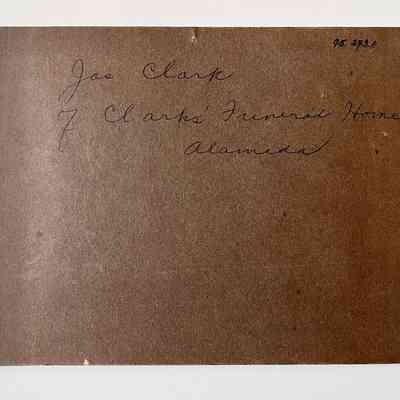 95 293.1
Jas Clark
7 Clarks' Funeral Home
Alameda